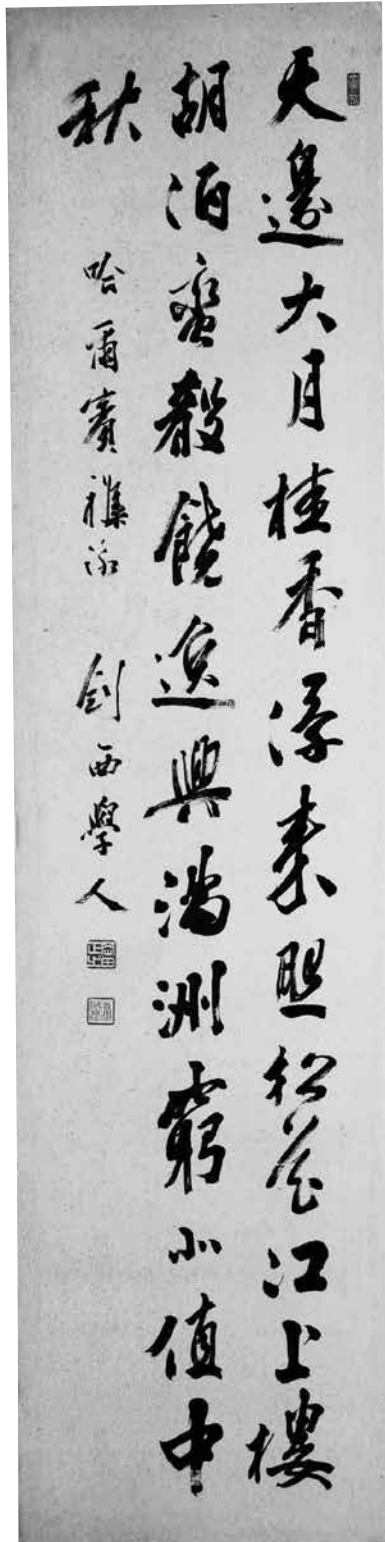 天邊大月桂香浮素照松花江上樓
胡酒蛮殽饒逸興滿洲窮北值中
秋
哈爾賓雜詠 劍西學人